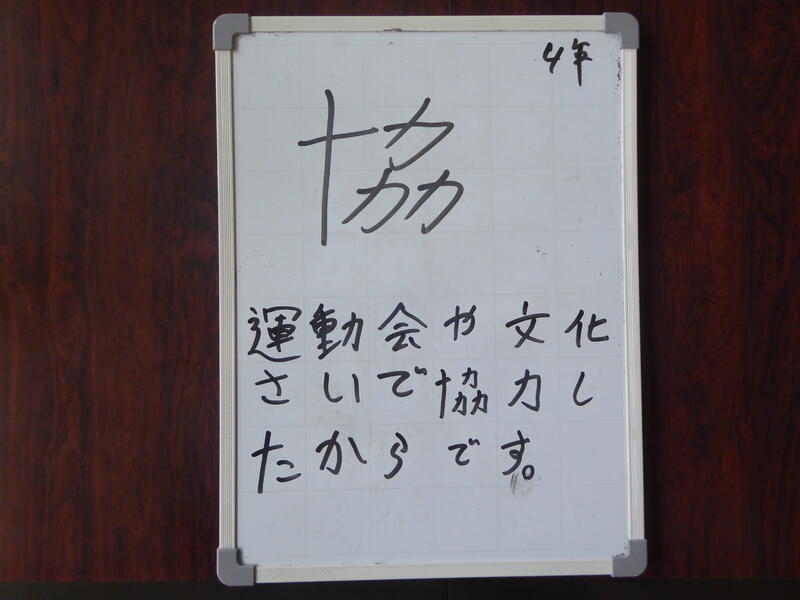 4年
協
運動会や文化
さいで協力し
たからです。